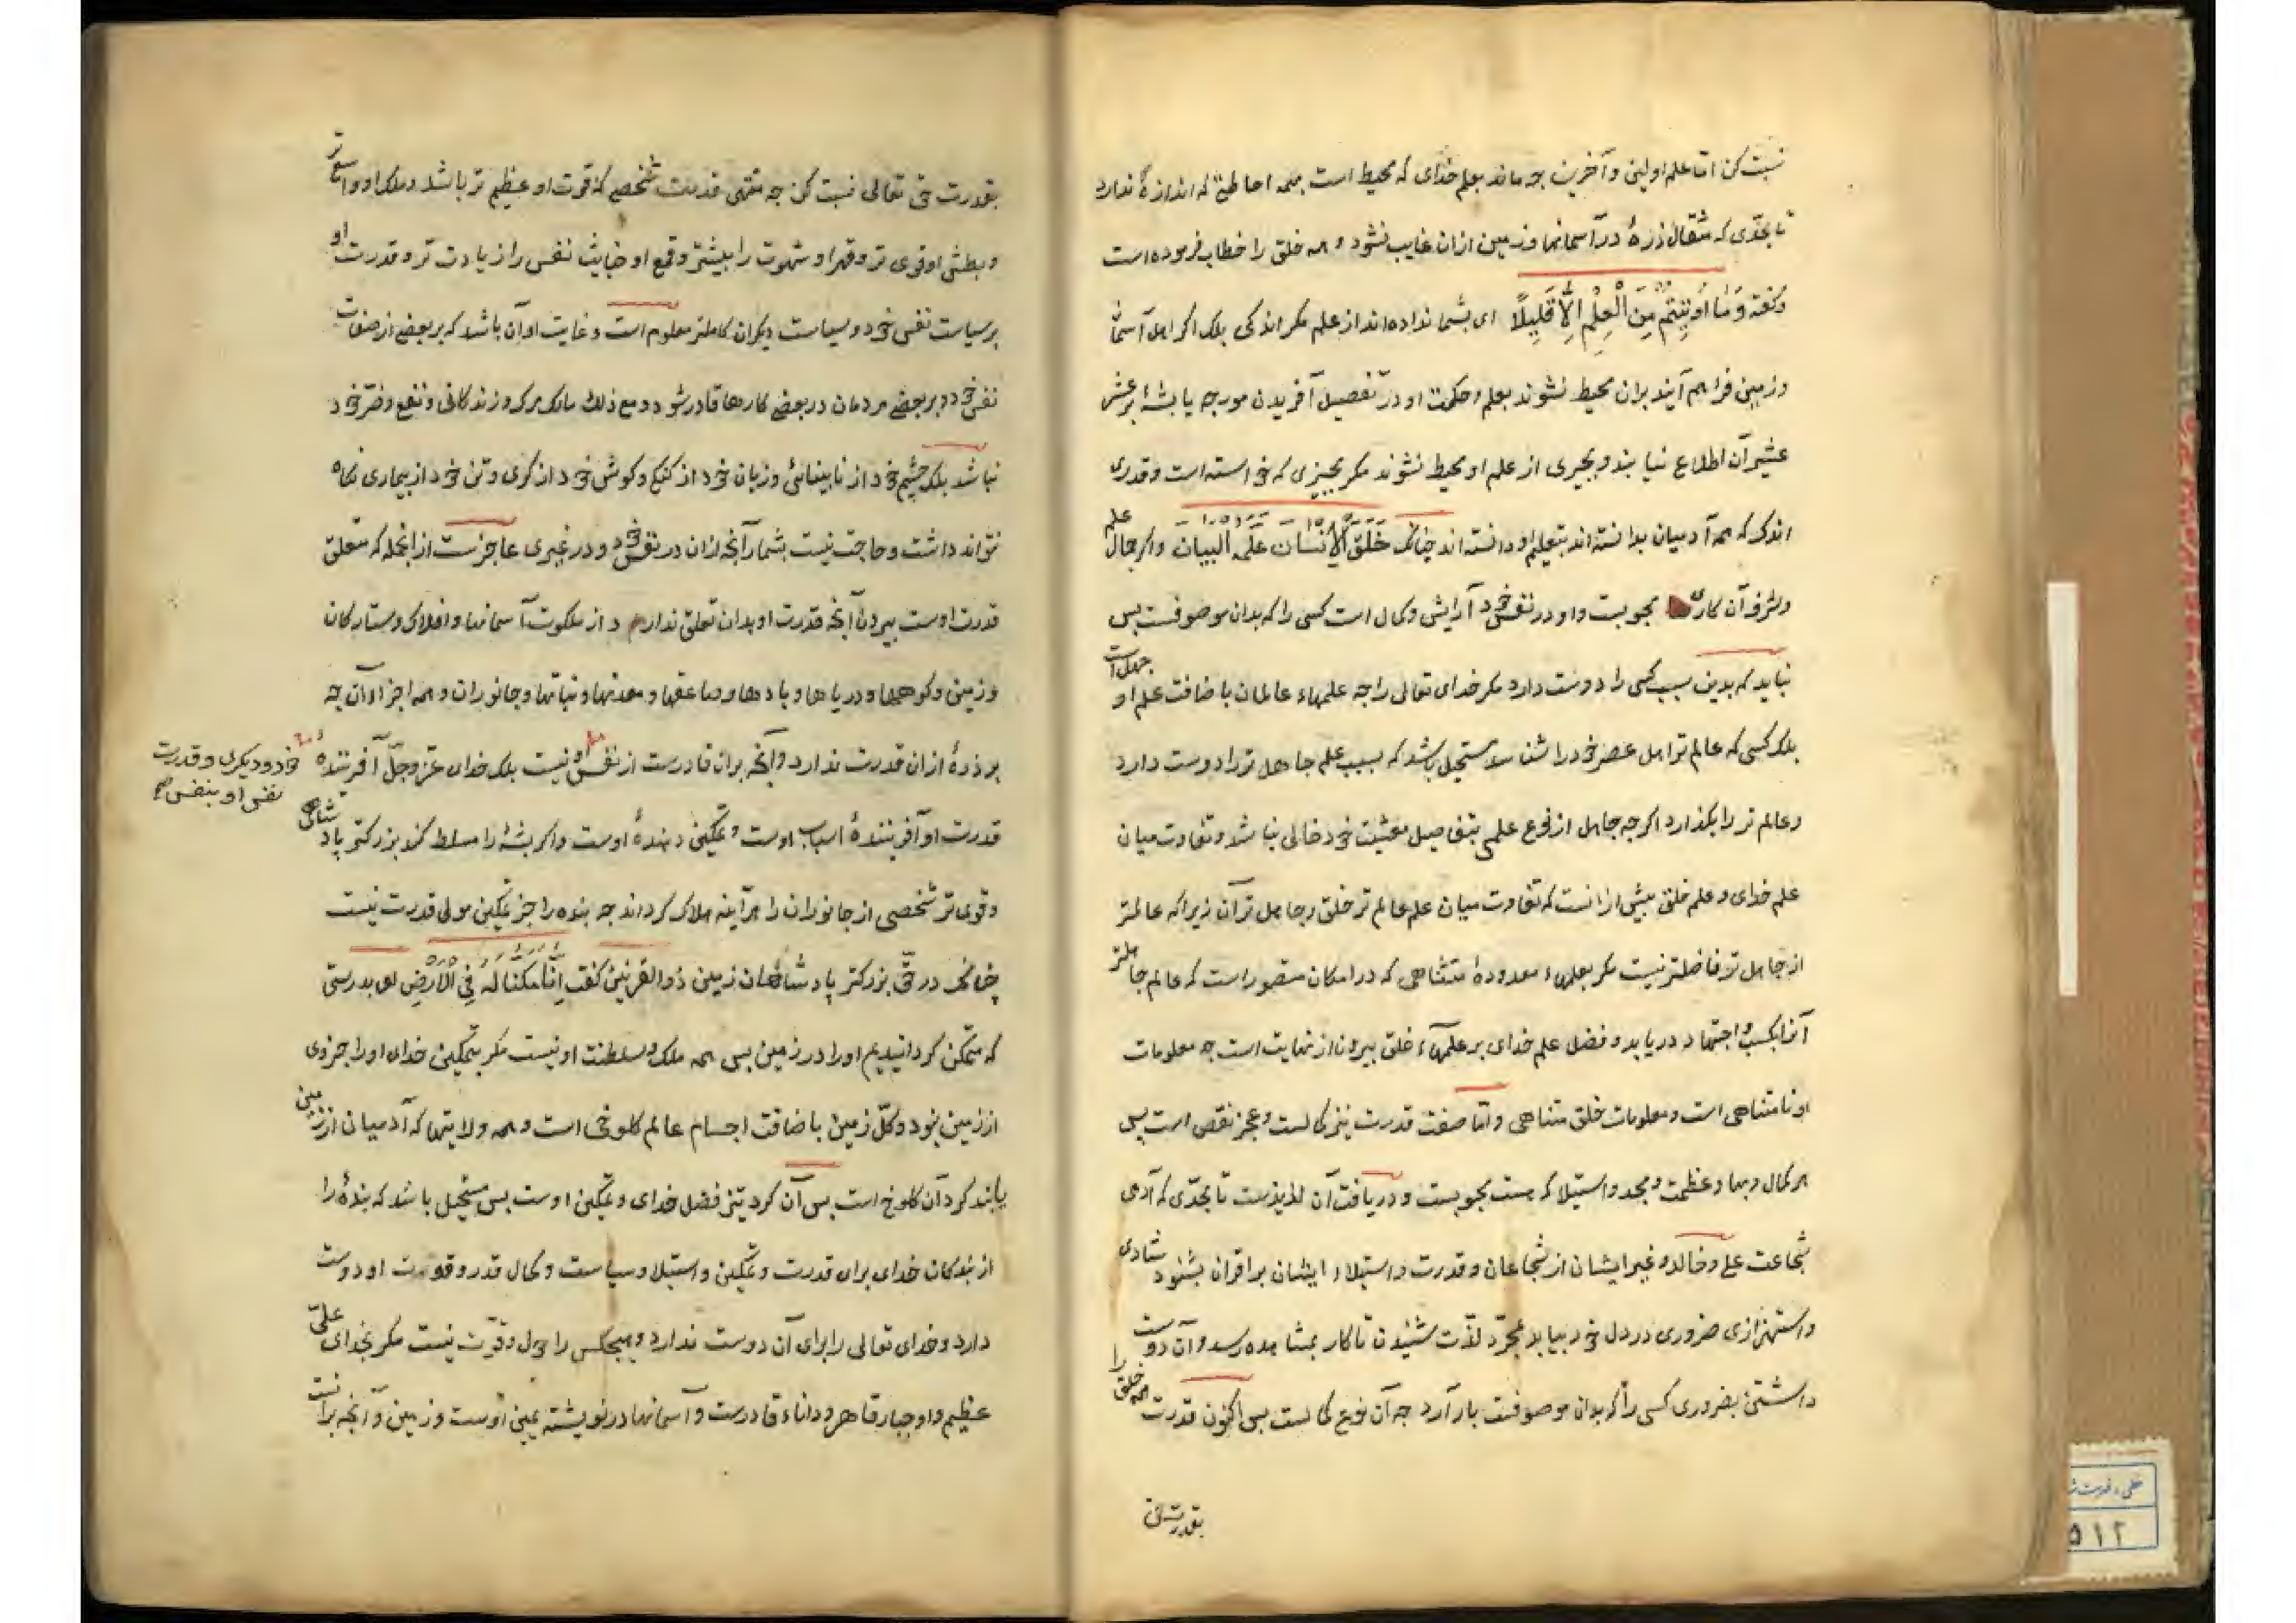 نسبت کن اما علم اولین و آخرین چه ماند بعلم خدای که محیط است بهمه احاطتی که اندازهٔ ندارد
تا بحدّی که مثقال ذرهٔ در آسمانها و زمین ازان غایب نشود و همه خلق را خطاب فرموده است
و گفته وَمَا اُوتِیتُم مِنَ الْعِلْمِ اِلَّا قَلِیلًا ای بشما نداده‌اند از علم مکر اندکی بلک اکر اهل آسمان
و زمین فراهم آیند بران محیط نشوند بعلم و حکمت او در تفصیل آفریدن مورچه یا پشهٔ بر عشر
عشیر آن اطلاع نیابند و بچیزی از علم او محیط نشوند مکر بچیزی که خواسته است و قدری
اندک که همه آدمیان بدانسته‌اند بتعلیم او دانسته‌اند چنانک خَلَقَ الْاِنْسَانَ عَلَّمَهُ الْبَیَانَ و اکر جمال علم
و شرف آن کاری محبوبست و او در نفس خود آرایش و کمال است کسی را که بدان موصوفست پس
نباید که بدین سبب کسی را دوست دارد مکر خدای تعالی را چه علمهاء عالمان باضافت علم او جهل است
بلک کسی که عالم‌تر اهل عصر خود را شناسد مستحیل باشد که بسبب علم جاهل‌تر را دوست دارد
و عالم‌تر را بکذارد اکرچه جاهل از نوع علمی بتفاصیل معیشت خود خالی نباشد و تفاوت میان
علم خدای و علم خلق بیش ازانست که تفاوت میان علم عالم‌تر خلق و جاهل‌تر آن زیرا که عالمتر
از جاهل‌تر فاضلتر نیست مکر بعلمهاء معدودهٔ متناهی که در امکان متصور است که عالم جاهلتر
آنرا بکسب و اجتهاد دریابد و فضل علم خدای بر علمهاء خلق بیرون از نهایت است چه معلومات
او نامتناهی است و معلومات خلق متناهی و امّا صفت قدرت نیز کمالست و عجز نقص است پس
هر کمال و بها و عظمت و مجد و استیلا که هست محبوبست و دریافت آن لذیذست تا بحدّی که آدمی
شجاعت علی و خالد و غیر ایشان از شجاعان و قدرت و استیلاء ایشان بر اقران بشنود شادی
و استهزازی ضروری در دل خود بیابد بمجرّد لذّت شنیدن تا کار بمشاهده رسد و آن دوست
داشتن بضروری کسی را که بدان موصوفست بار آرد چه آن نوع کمالست پس اکنون قدرت همه خلق را
بقدرت حق
بقدرت حق تعالی نسبت کن چه منتهی قدرت شخصی که قوت او عظیم‌تر باشد و ملک او واسع‌تر
و بطش او قوی‌تر و قهر او شهوت را بیشتر و قمع او خبایث نفس را از یادت‌تر و قدرت او
بر سیاست نفس خود و سیاست دیکران کاملتر معلوم است و غایت او آن باشد که بر بعضی از صفات
نفس خود و بر بعضی مردمان در بعضی کارها قادر شود و مع ذلک مالک مرک و زندکانی و نفع و ضرّ خود
نباشد بلک چشم خود از نابینائی و زبان خود از کنکی و کوش خود از کری و تن خود از بیماری نکاه
نتواند داشت و حاجت نیست بشمار آنچه ازان در نفس خود و در غیری عاجزست از انجمله که متعلق
قدرت اوست بیرون آنچه قدرت او بدان تعلق ندارد از ملکوت آسمانها و افلاک و ستارکان
و زمین و کوهها و دریاها و بادها و صاعقها و معدنها و نباتها و جانوران و همه اجزاء آن چه
بر ذرهٔ ازان قدرت ندارد و آنچه بران قادرست از نفس او نیست بلک خدای عزّوجلّ آفرینندهٔ
خود و دیکری و قدرت
نفس او بنفس
قدرت او آفرینندهٔ اسباب اوست و تمکین دهندهٔ اوست و اکر پشهٔ را مسلط کند بزرکتر پادشاهی
و قوی‌تر شخصی از جانوران را هرآینه هلاک کرداند چه بنده را جز تمکین مولی قدرت نیست
چنانک در حقّ بزرکتر پادشاهان زمین ذوالقرنین کفت اِنَّا مَکَّنَّا لَهُ فِی الْاَرْضِ ای بدرستی
که متمکن کردانیدیم او را در زمین پس همه ملک و سلطنت او نیست مکر بتمکین خدای او را جزوی
از زمین نبود و کلّ زمین باضافت اجسام عالم کلوخی است و همه ولایتها که آدمیان از زمین
یابند کرد آن کلوخ است پس آن کرد نیز فضل خدای و تمکین اوست پس مستحیل باشد که بندهٔ را
از بندکان خدای برای قدرت و تمکین و استیلا و سیاست و کمال قدر و قوت او دوست
دارد و خدای تعالی را برای آن دوست ندارد و هیچکس را حول و قوّت نیست مکر بخدای علیّ
عظیم و او جبار قاهر و داناء قادرست و آسمانها در نوشتهٔ یمین اوست و زمین و آنچه برانست
۵۱۲